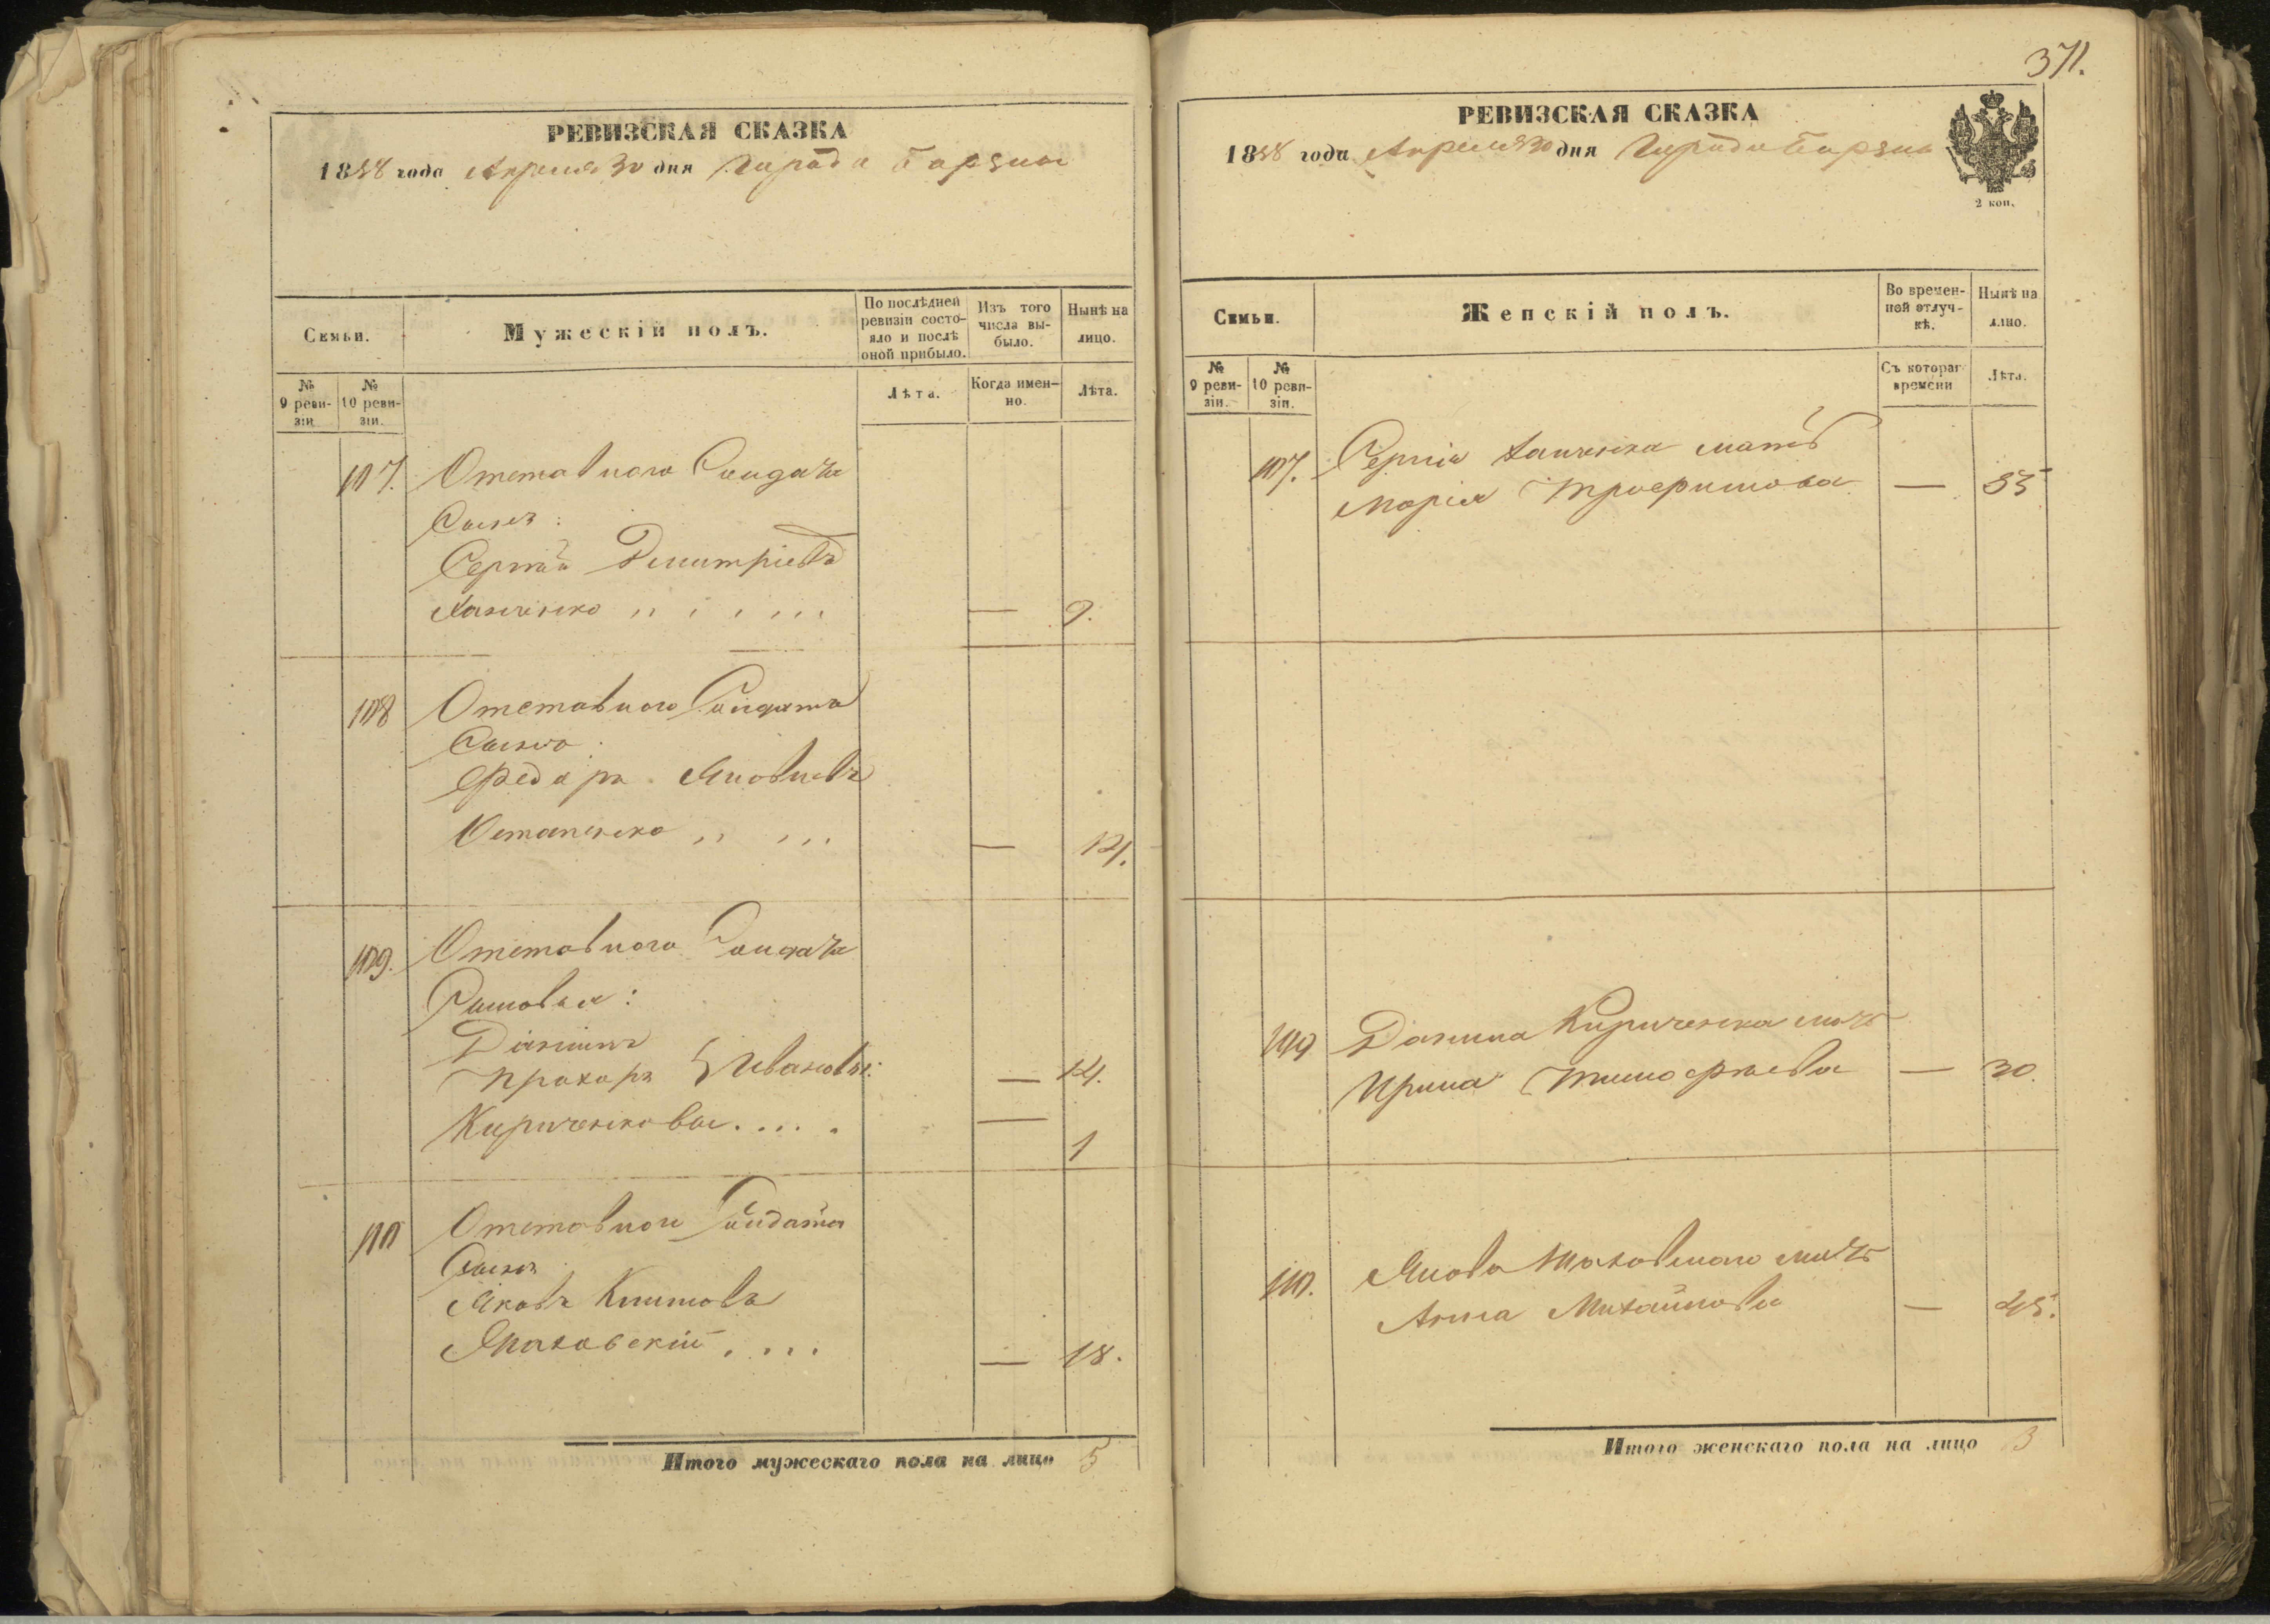 РЕВИЗСКАЯ СКАЗКА
1858 года Апреля 30 дня Города Борзны
Семьи.
Мужескій полъ.
По послѣдней ревизіи состояло и послѣ оной прибыло.
Изъ того числа выбыло.
Нынѣ на лицо.
№ 9 ревизіи
№ 10 ревизіи.
Лѣта.
Когда именно.
Лѣта.
107. Отставного Солдата
Сынъ:
Сергѣй Дмитріевъ
— 9.
108 Отставного Солдата
Сынъ:
Федоръ Яковлевъ
Остапенко — 12.
109. Отставного Солдата
Сыновья:
Даніилъ
Прохоръ } Ивановы: — 12.
Кириченковы..... — 1
110 Отставного Солдата
Сынъ
Яковъ Климовъ
.... — 18.
Итого мужескаго пола на лицо 5
371.
РЕВИЗСКАЯ СКАЗКА
1858 года Апреля 30 дня Города Борзны
2 коп.
Семьи.
Женскій полъ.
Во временной отлучкѣ.
Нынѣ на лицо.
№ 9 ревизіи.
№ 10 ревизіи.
Съ котораг времени
Лѣта.
107. Сергія мать
Марія Трофимова — 35
109 Данила Кириченка мать
Ирина Тимофѣева — 30.
110. Якова мать
Анна Михайлова — 45.
Итого женскаго пола на лицо 3